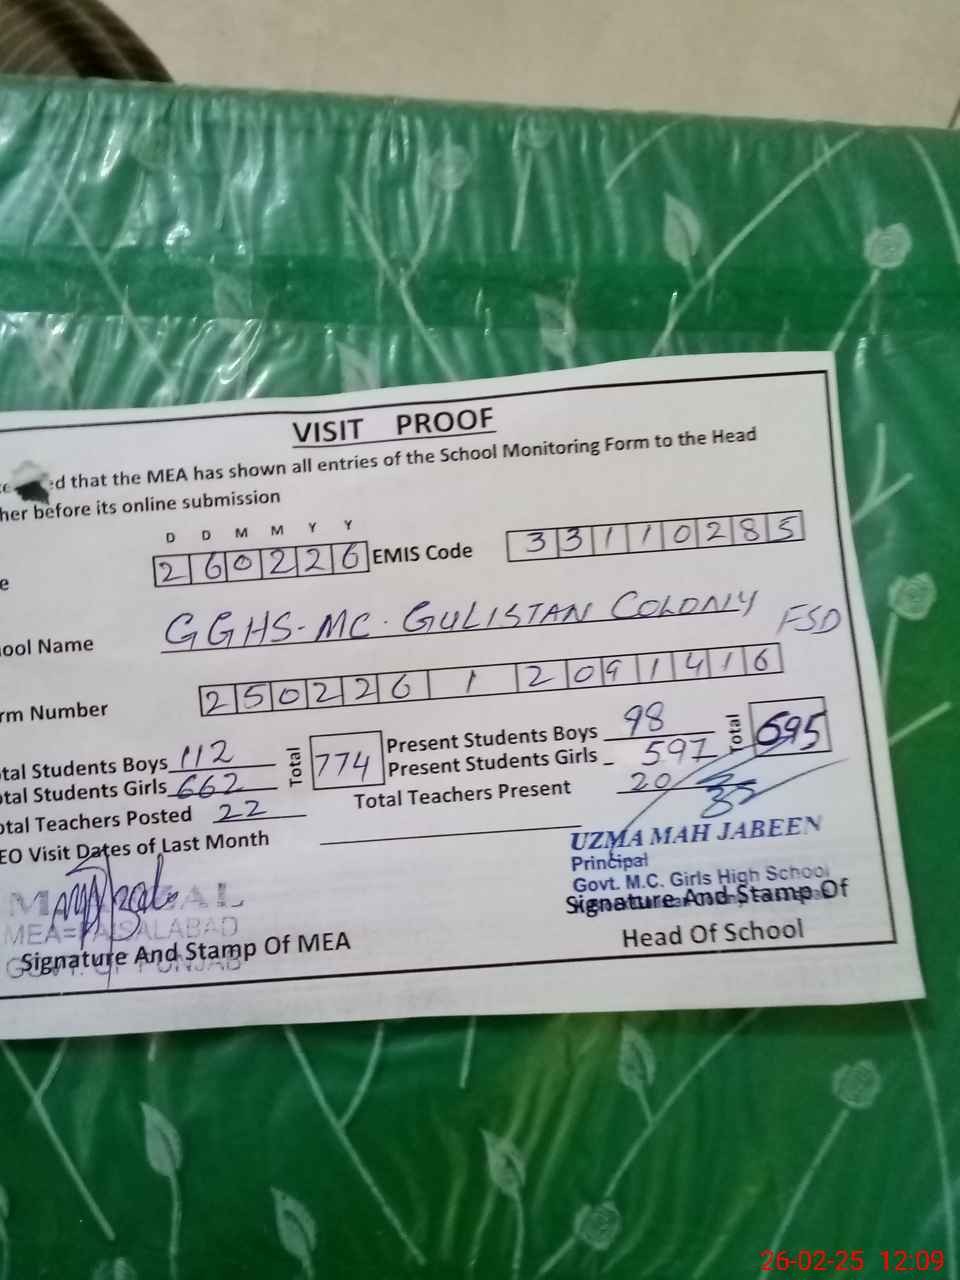 VISIT PROOF
ed that the MEA has shown all entries of the School Monitoring Form to the Head
her before its online submission
D D M M Y Y
e 260226 EMIS Code 33110285
ool Name GGHS-MC. GULISTAN COLONY FSD
rm Number 250226 1 2091416
tal Students Boys 112 Total 774 Present Students Boys 98 Total 695
tal Students Girls 662 Present Students Girls 597
otal Teachers Posted 22 Total Teachers Present 20
EO Visit Dates of Last Month
UZMA MAH JABEEN
Principal
Govt. M.C. Girls High School
MEA=FAISALABAD
GOVT. OF PUNJAB
Signature And Stamp Of MEA
Signature And Stamp Of
Head Of School
26-02-25 12:09